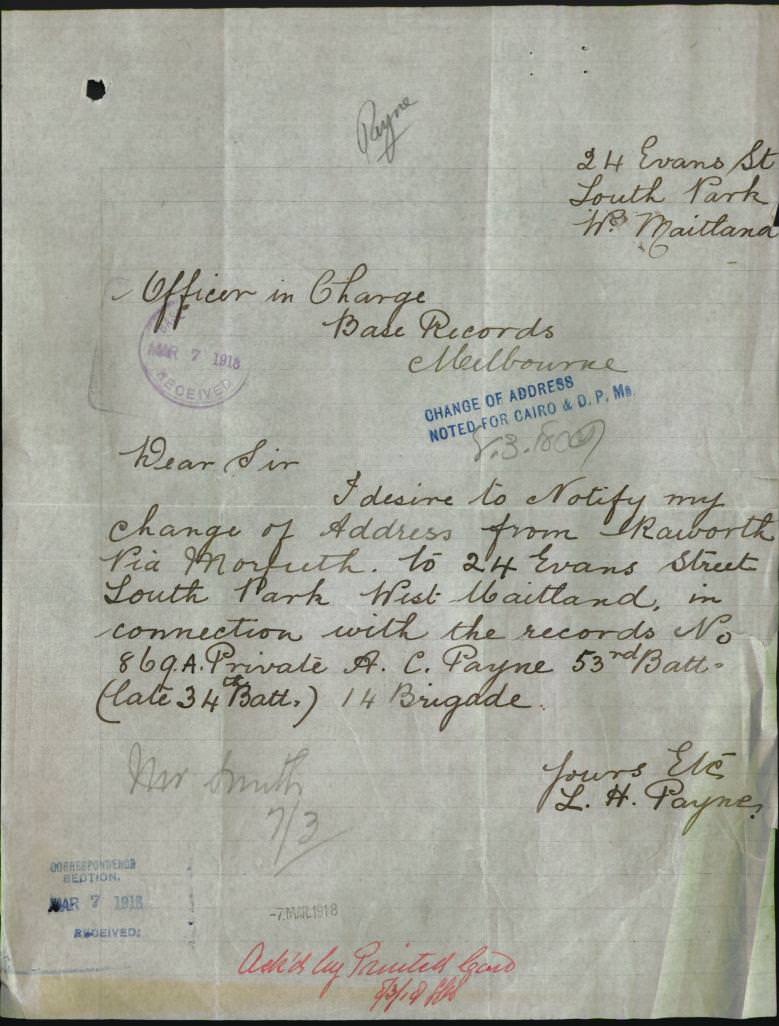 Payne
24 Evans St
South Park
W. Maitland
Officer in Charge
Base Records
Melbourne
MAR 7 1918
RECEIVED
CHANGE OF ADDRESS
NOTED FOR CAIRO & D. P, Ms.
Dear Sir
I desire to Notify my
change of Address from
Via Morpeth. to 24 Evans Street
South Park West Maitland, in
connection with the records No
869.A. Private A. C. Payne 53rd Batt.
(late 34th Batt.) 14 Brigade.
Yours Etc
L. H. Payne.
Mr Smith
7/3
CORRESPONDENCE
SECTION.
MAR 7 1918
RECEIVED:
-7.MAR.1918
Ack'd by Printed Card